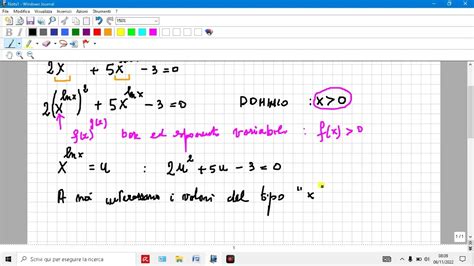 Note1 - Windows Journal
File Modifica Visualizza Inserisci Azioni Strumenti ?
150%
2x + 5x^{ln x} - 3 = 0
2(x^{ln x})^2 + 5x^{ln x} - 3 = 0 DOMINIO : x > 0
f(x)^{g(x)} base ed esponente variabile : f(x) > 0
x^{ln x} = u : 2u^2 + 5u - 3 = 0
A noi interessano i valori del tipo "x
1 / 1
Scrivi qui per eseguire la ricerca
06/11/2022